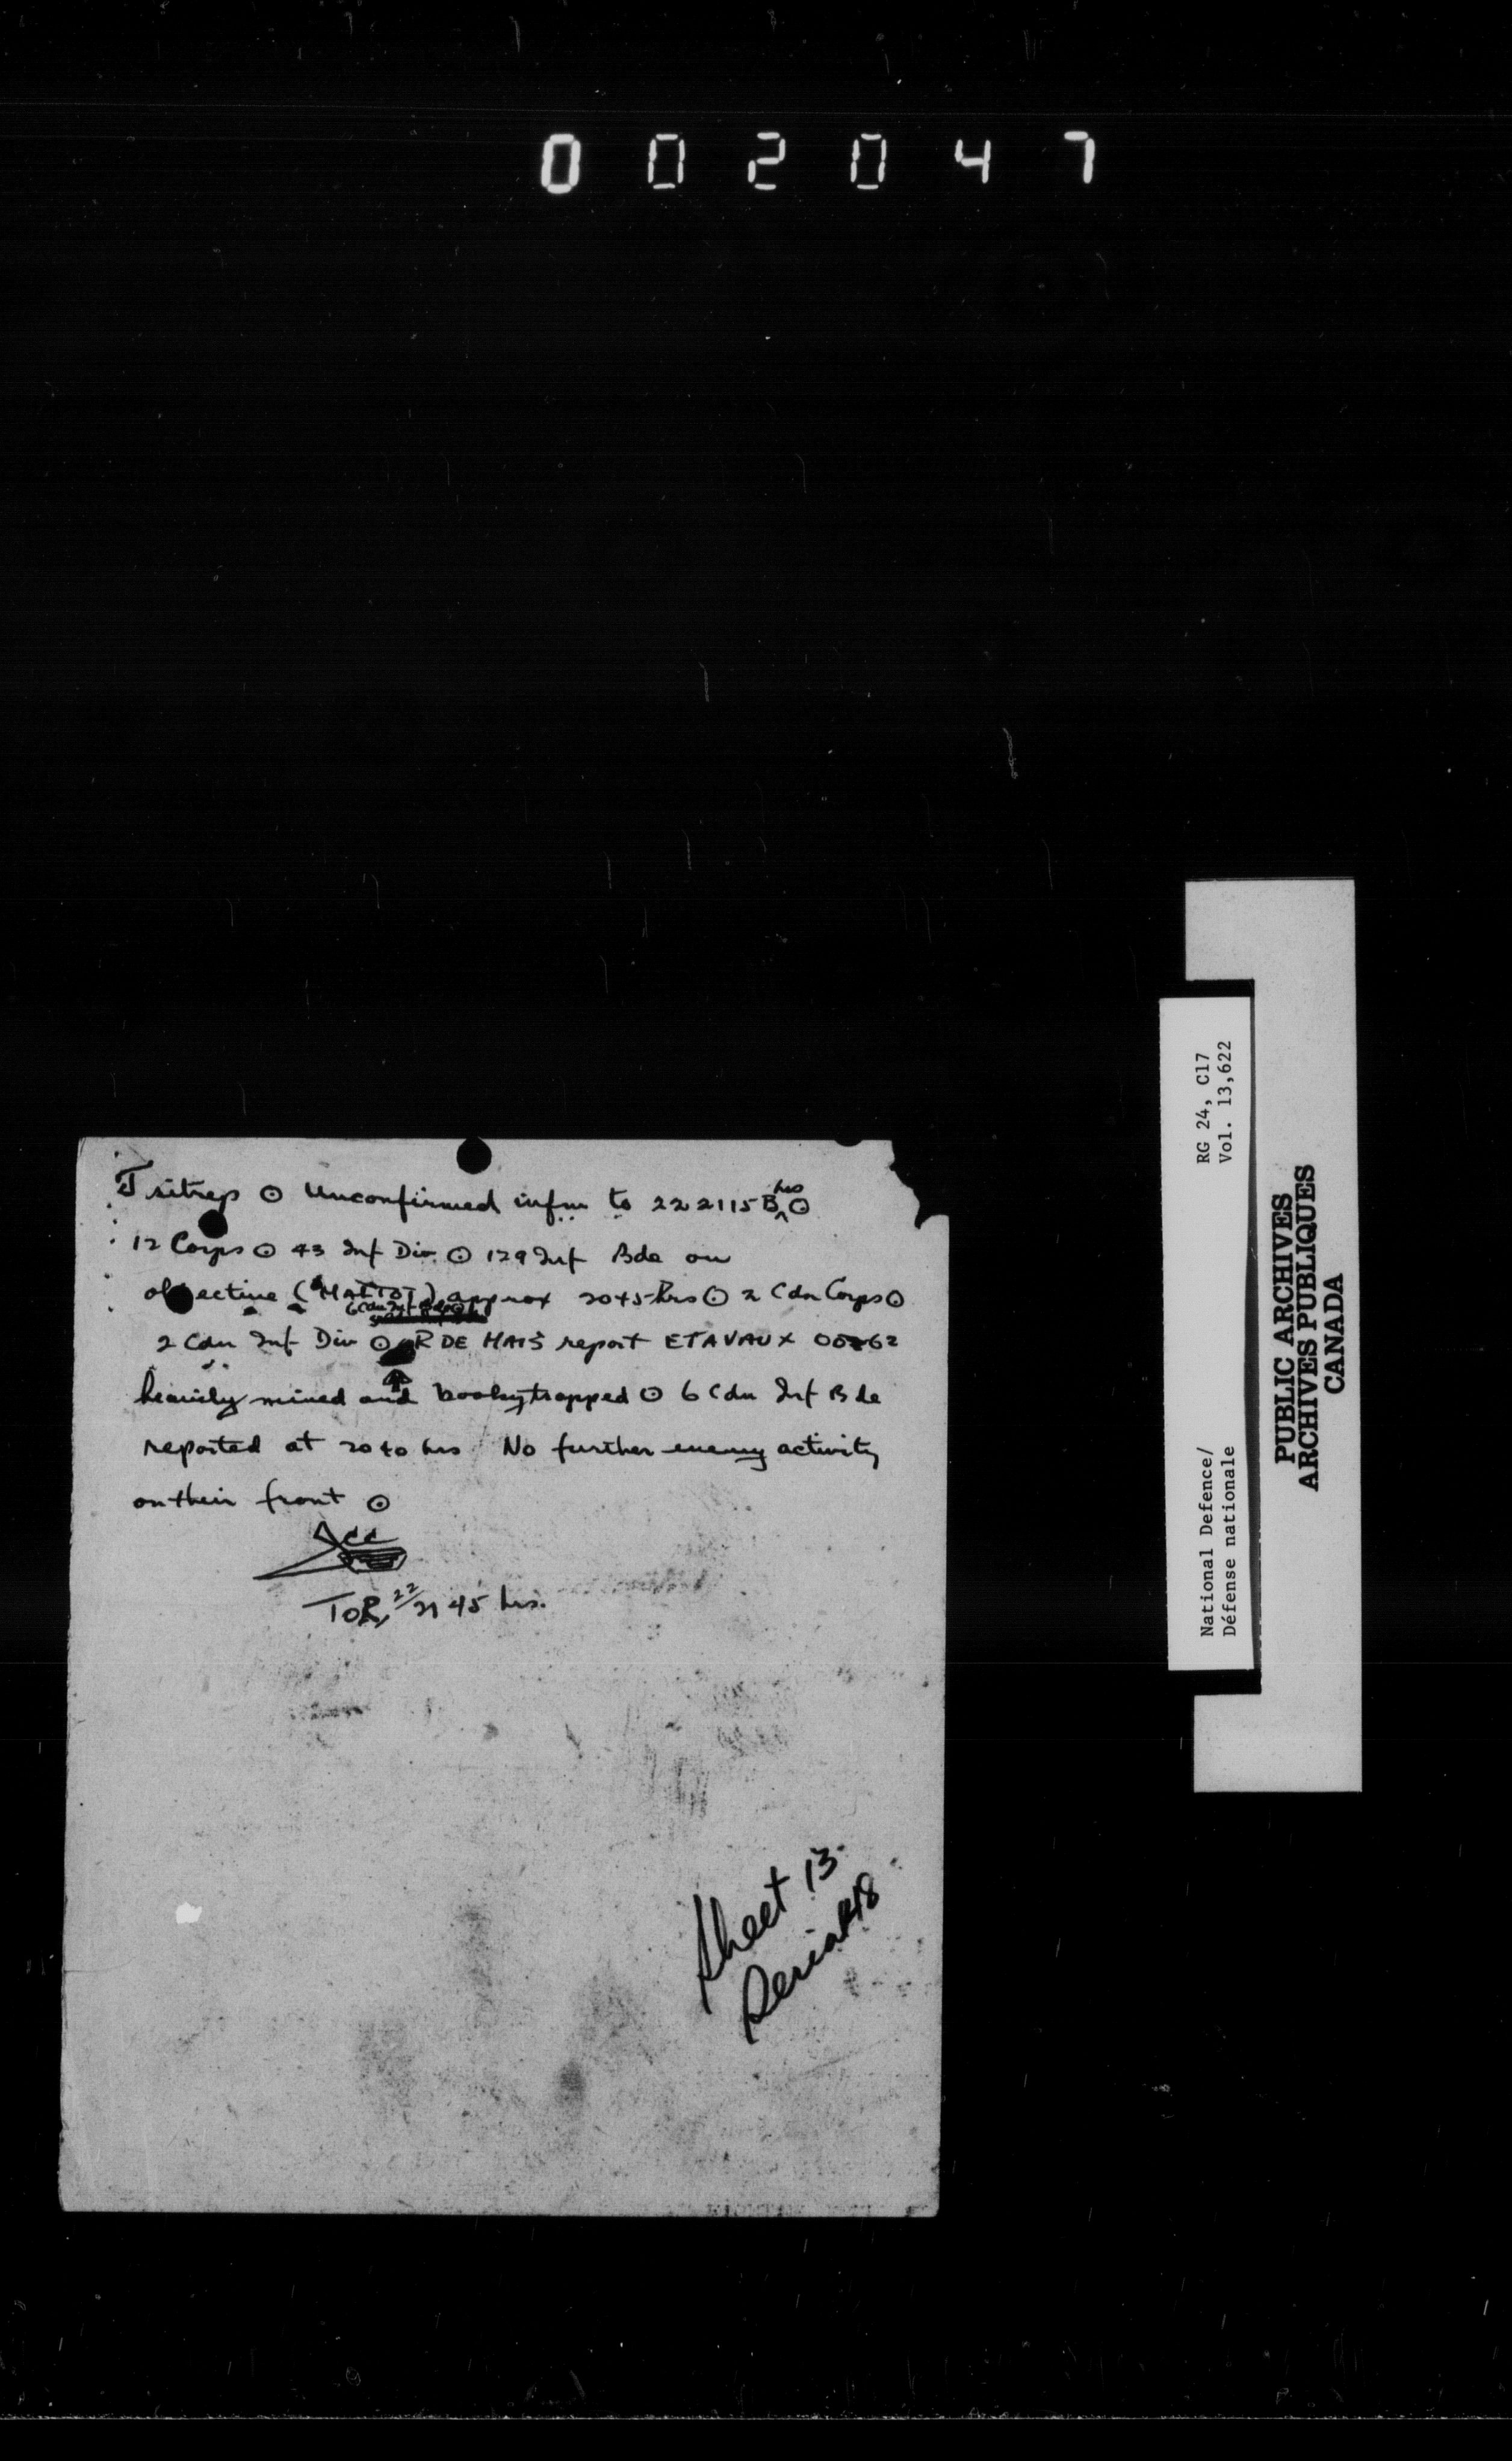 002047
J sitrep ⊙ Unconfirmed infm to 222115B hrs ⊙
12 Corps ⊙ 43 Inf Div ⊙ 129 Inf Bde on
objective (MALTOT) approx 2045 hrs ⊙ 2 Cdn Corps ⊙
6 Cdn Inf Bde ⊙
2 Cdn Inf Div ⊙ R DE MAIS report ETAVAUX 0262
heavily mined and boobytrapped ⊙ 6 Cdn Inf Bde
reported at 2040 hrs No further enemy activity
on their front ⊙
TOR, 22/2145 hrs.
Sheet 13
Serial 48
RG 24, C17
Vol. 13,622
National Defence/
Défense nationale
PUBLIC ARCHIVES
ARCHIVES PUBLIQUES
CANADA